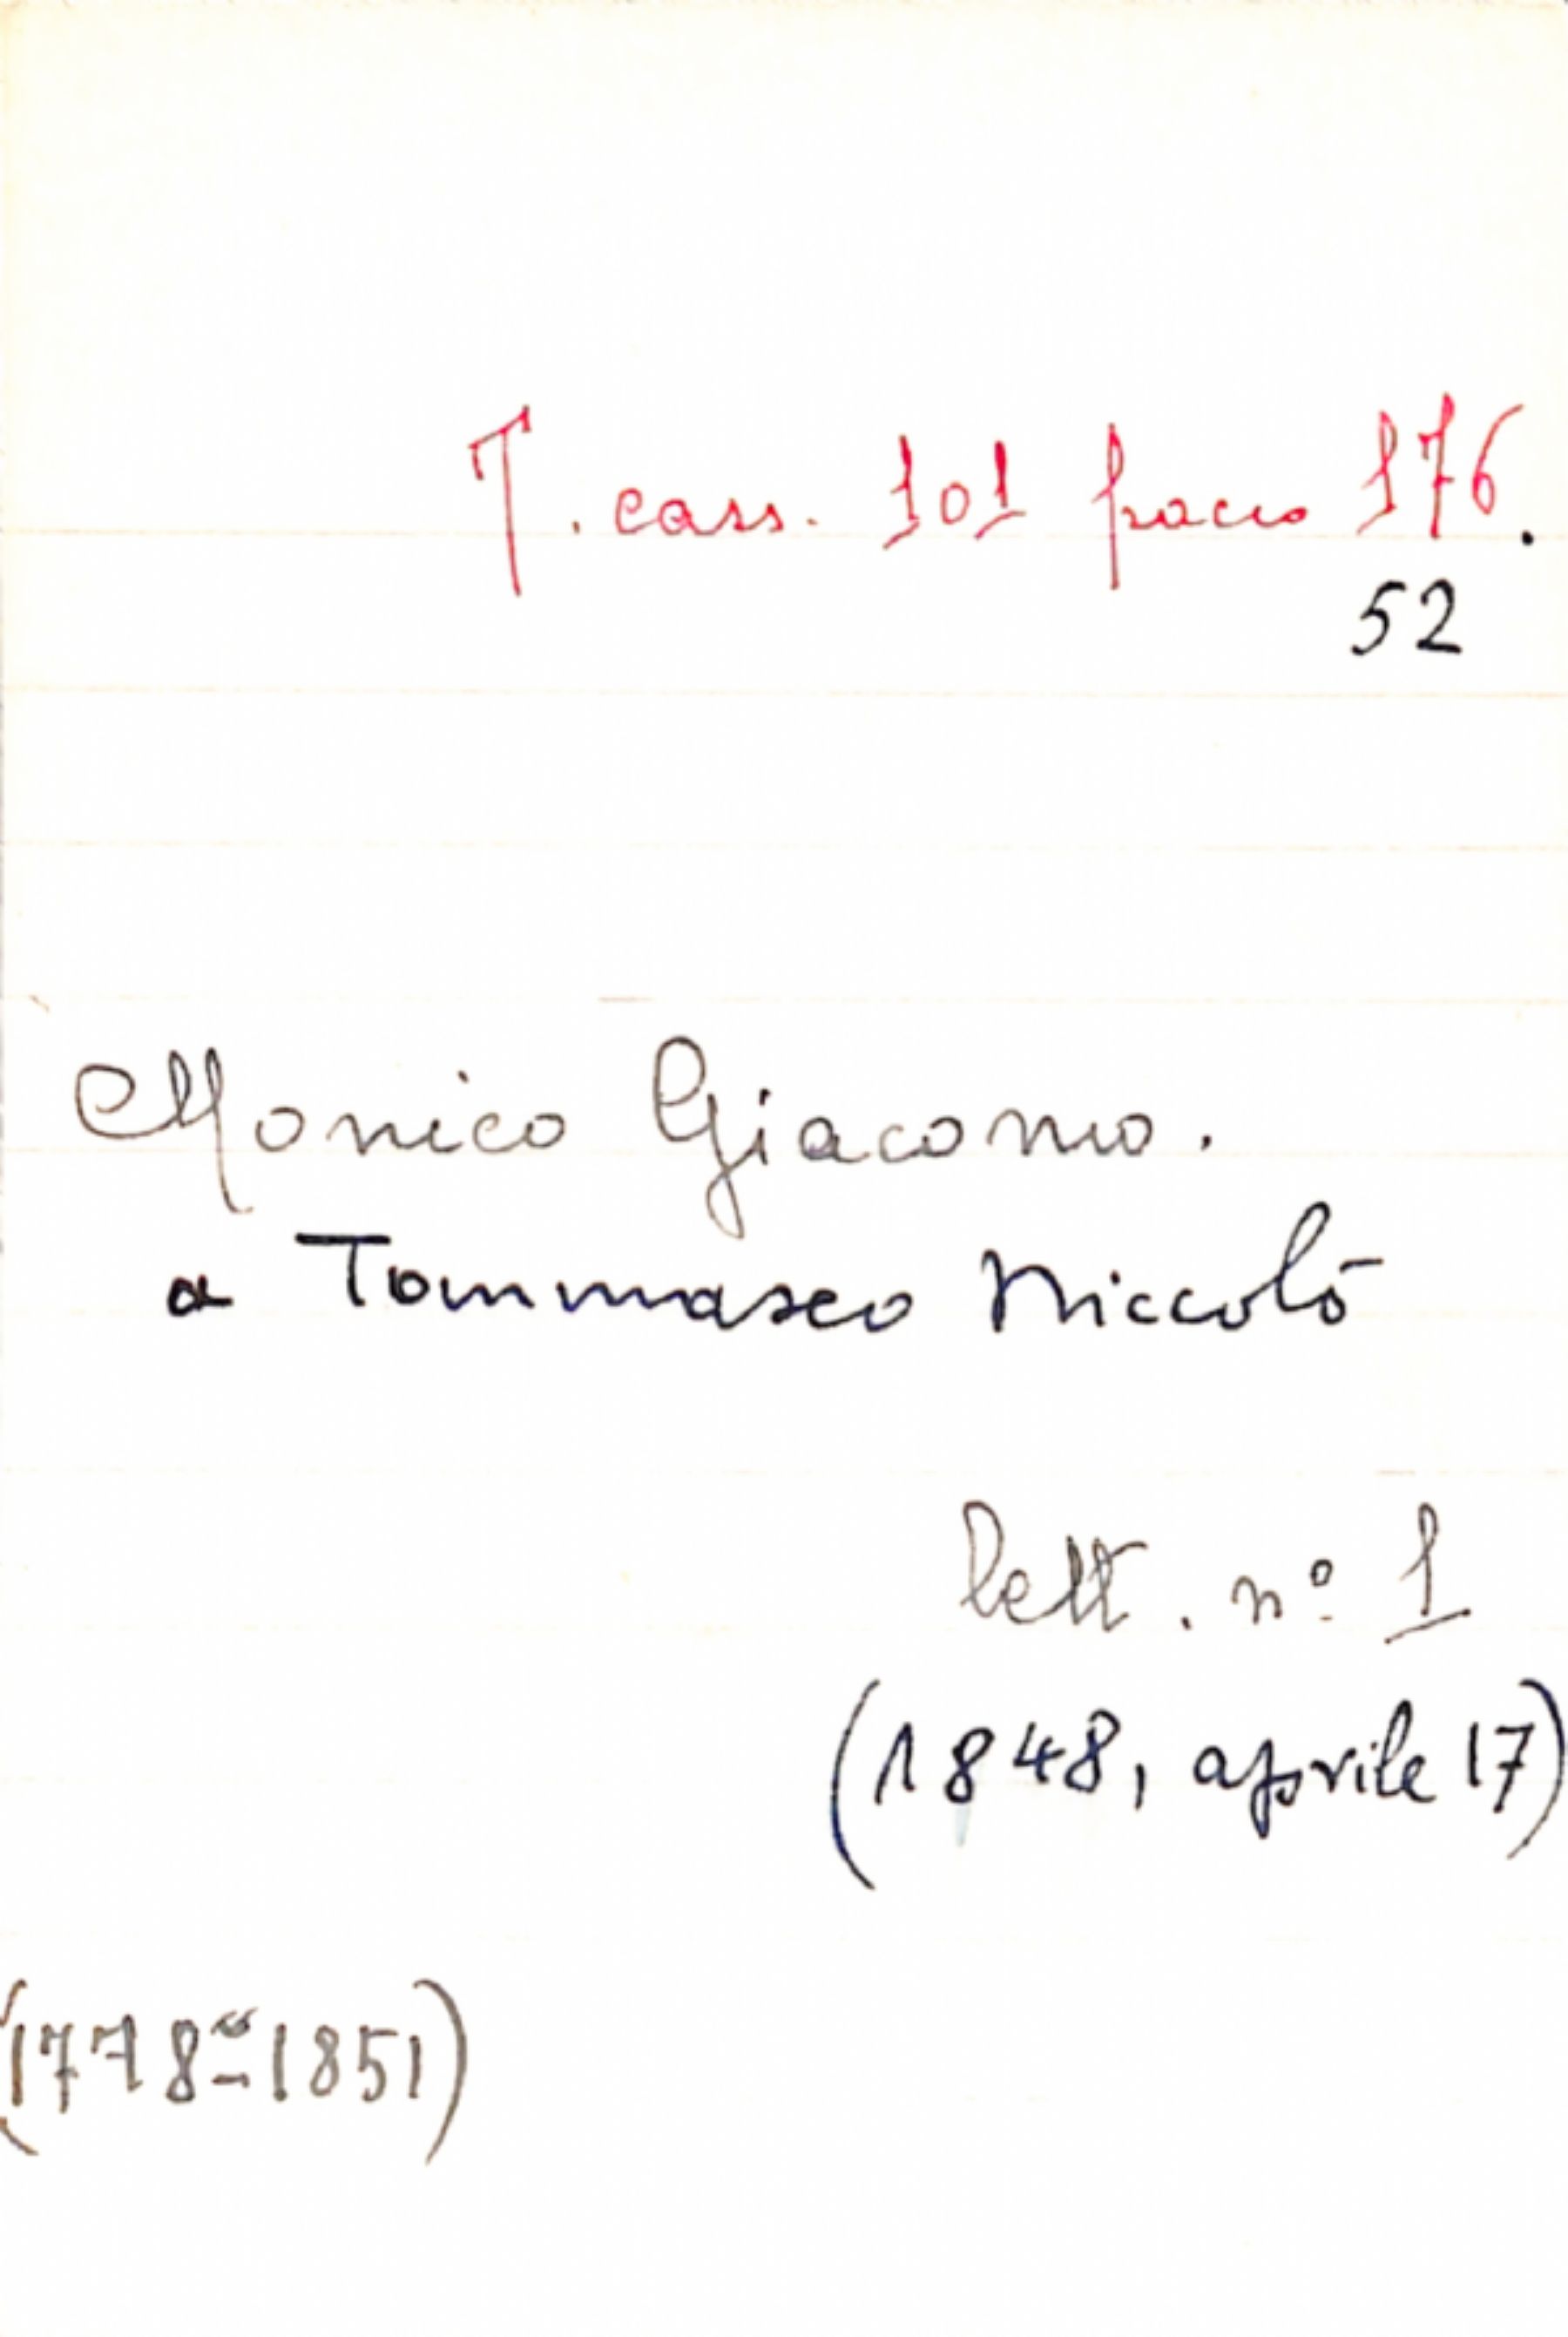 T. cass. 101 pacco 176.
52
Monico Giacomo.
a Tommaseo Niccolò
lett. nº 1
(1848, aprile 17)
(1778-1851)